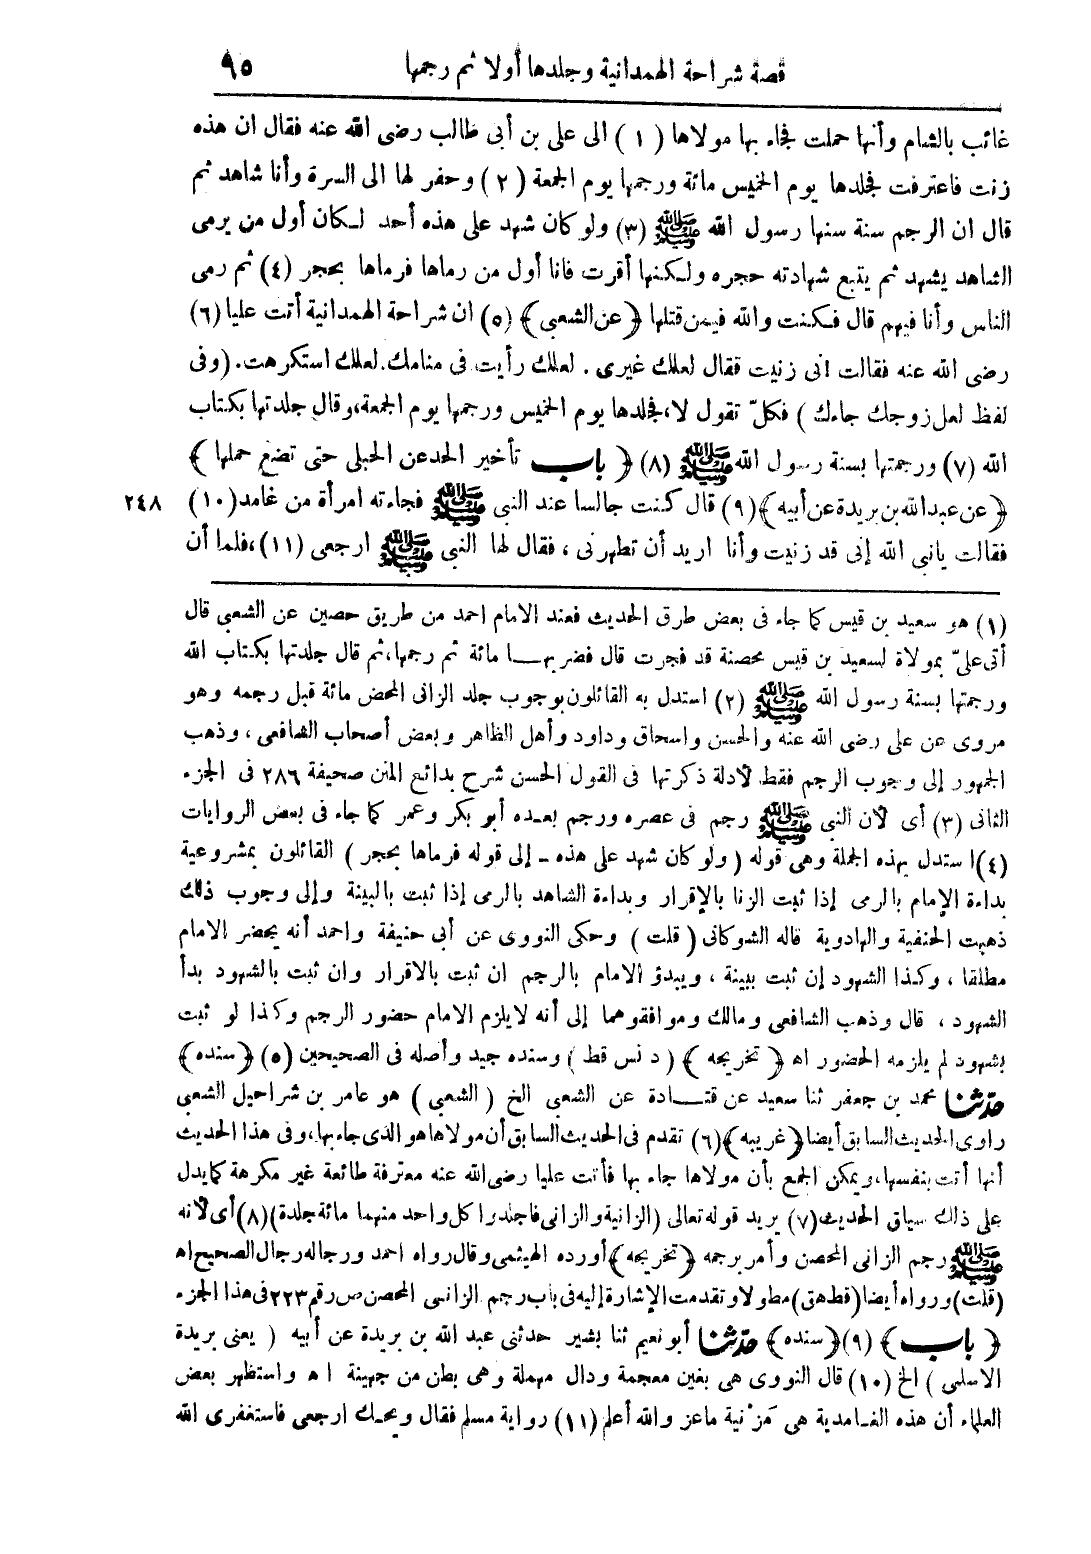 قصة شراحة الهمدانية وجلدها أولا ثم رجمها ٩٥
غائب بالشام وأنها حملت فجاء بها مولاها (١) الى على بن أبى طالب رضى الله عنه فقال ان هذه
زنت فاعترفت فجلدها يوم الخميس مائة ورجمها يوم الجمعة (٢) وحفر لها الى السرة وأنا شاهد ثم
قال ان الرجم سنة سنها رسول الله ﷺ (٣) ولو كان شهد على هذه أحد لكان أول من يرمى
الشاهد يشهد ثم يتبع شهادته حجره ولكنها أقرت فانا أول من رماها فرماها بحجر (٤) ثم رمى
الناس وأنا فيهم قال فكنت والله فيمن قتلها ﴿عن الشعبى﴾ (٥) ان شراحة الهمدانية أتت عليا (٦)
رضى الله عنه فقالت انى زنيت فقال لعلك غيرى . لعلك رأيت فى منامك . لعلك استكرهت . (وفى
لفظ لعل زوجك جاءك) فكلّ تقول لا، فجلدها يوم الخميس ورجمها يوم الجمعة، وقال جلدتها بكتاب
الله (٧) ورجمتها بسنة رسول الله ﷺ (٨) ﴿باب تأخير الحد عن الحبلى حتى تضع حملها﴾
﴿عن عبد الله بن بريدة عن أبيه﴾ (٩) قال كنت جالسا عند النبى ﷺ فجاءته امرأة من غامد (١٠) ٢٤٨
فقالت يانبى الله إنى قد زنيت وأنا اريد أن تطهرنى ، فقال لها النبى ﷺ ارجعى (١١)، فلما أن
(١) هو سعيد بن قيس كما جاء فى بعض طرق الحديث فعند الامام احمد من طريق حصين عن الشعبى قال
أتى علىّ بمولاة لسعيد بن قيس محصنة قد فجرت قال فضربها مائة ثم رجمها، ثم قال جلدتها بكتاب الله
ورجمتها بسنة رسول الله ﷺ (٢) استدل به القائلون بوجوب جلد الزانى المحض مائة قبل رجمه وهو
مروى عن على رضى الله عنه والحسن واسحاق وداود وأهل الظاهر وبعض أصحاب الشافعى ، وذهب
الجمهور إلى وجوب الرجم فقط لأدلة ذكرتها فى القول الحسن شرح بدائع المنن صحيفة ٢٨٦ فى الجزء
الثانى (٣) أى لأن النبى ﷺ رجم فى عصره ورجم بعده أبو بكر وعمر كما جاء فى بعض الروايات
(٤) استدل بهذه الجملة وهى قوله (ولو كان شهد على هذه ـ إلى قوله فرماها بحجر) القائلون بمشروعية
بداءة الإمام بالرمى إذا ثبت الزنا بالإقرار وبداءة الشاهد بالرمى إذا ثبت بالبينة وإلى وجوب ذلك
ذهبت الحنفية والهادوية قاله الشوكانى (قلت) وحكى النووى عن أبى حنيفة واحمد أنه يحضر الامام
مطلقا ، وكذا الشهود إن ثبت ببينة ، ويبدؤ الامام بالرجم ان ثبت بالاقرار وان ثبت بالشهود بدأ
الشهود ، قال وذهب الشافعى ومالك وموافقوهما إلى أنه لايلزم الامام حضور الرجم وكذا لو ثبت
بشهود لم يلزمه الحضور اه ﴿تخريجه﴾ (د نس قط) وسنده جيد وأصله فى الصحيحين (٥) ﴿سنده﴾
حدّثنا محمد بن جعفر ثنا سعيد عن قتادة عن الشعبى الخ (الشعبى) هو عامر بن شراحيل الشعبى
راوى الحديث السابق أيضا ﴿غريبه﴾ (٦) تقدم فى الحديث السابق أن مولاها هو الذى جاء بها، وفى هذا الحديث
أنها أتت بنفسها، ويمكن الجمع بأن مولاها جاء بها فأتت عليا رضى الله عنه معترفة طائعة غير مكرهة كما يدل
على ذلك سياق الحديث (٧) يريد قوله تعالى (الزانية والزانى فاجلدوا كل واحد منهما مائة جلدة) (٨) أى لأنه
ﷺ رجم الزانى المحصن وأمر برجمه ﴿تخريجه﴾ أورده الهيثمى وقال رواه احمد ورجاله رجال الصحيح اه
(قلت) ورواه أيضا (قط هق) مطولا وتقدمت الإشارة إليه فى باب رجم الزانى المحصن ص رقم ٢٢٣ فى هذا الجزء
﴿باب﴾ (٩) ﴿سنده﴾ حدّثنا أبو نعيم ثنا بشير حدثنى عبد الله بن بريدة عن أبيه (يعنى بريدة
الاسلمى) الخ (١٠) قال النووى هى بغين معجمة ودال مهملة وهى بطن من جهينة اه واستظهر بعض
العلماء أن هذه الغامدية هى مَزْنية ماعز والله أعلم (١١) رواية مسلم فقال ويحك ارجعى فاستغفرى الله